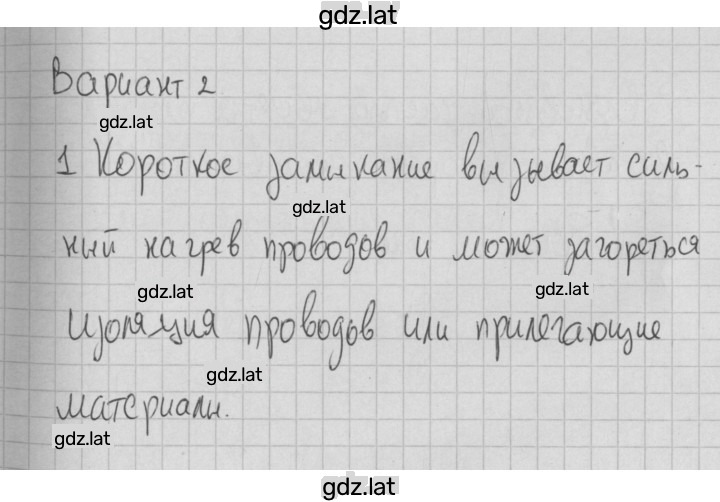 gdz.lat
Вариант 2
gdz.lat
1 Короткое замыкание вызывает силь-
gdz.lat
ный нагрев проводов и может загореться
gdz.lat
gdz.lat
изоляция проводов или прилегающие
gdz.lat
материалы.
gdz.lat
gdz.lat